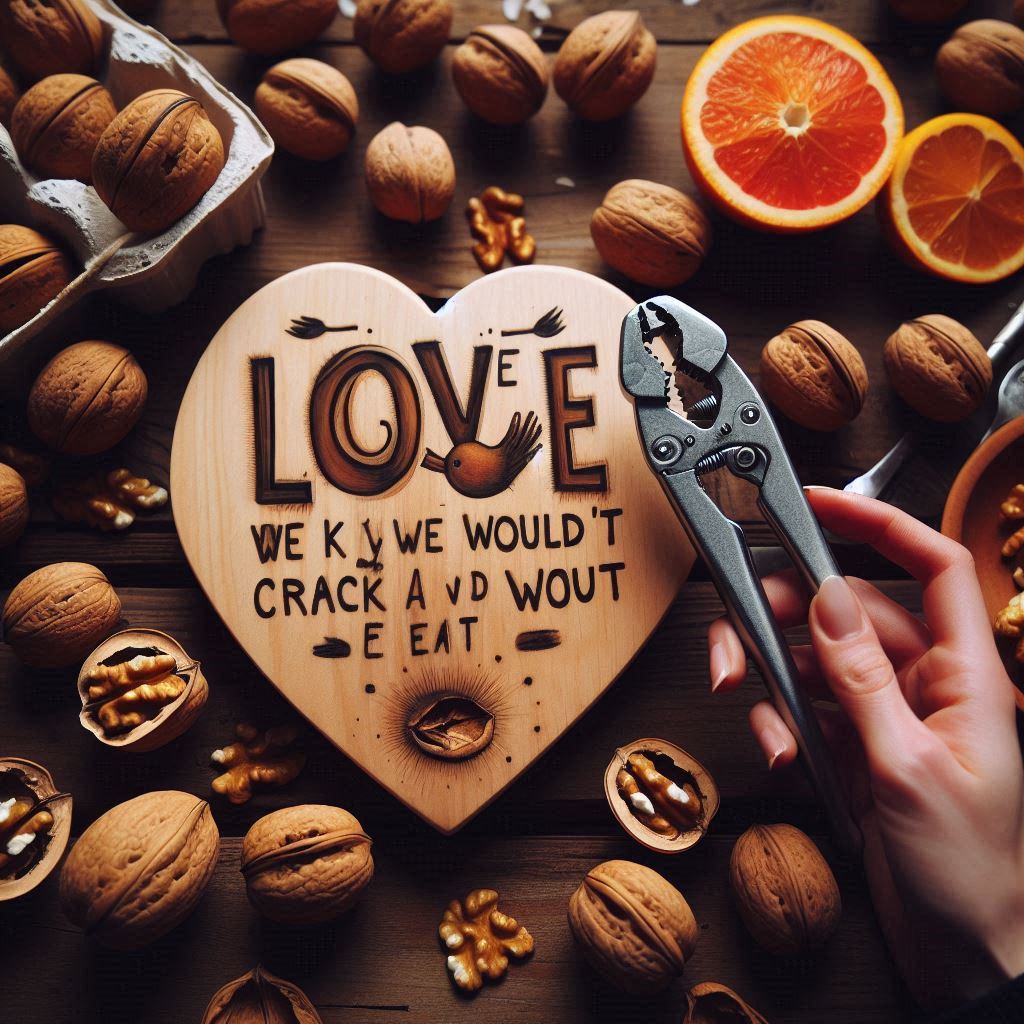 LOVEE
WE K y WE WOULD'T
CRACK A VD WOUT
E EAT